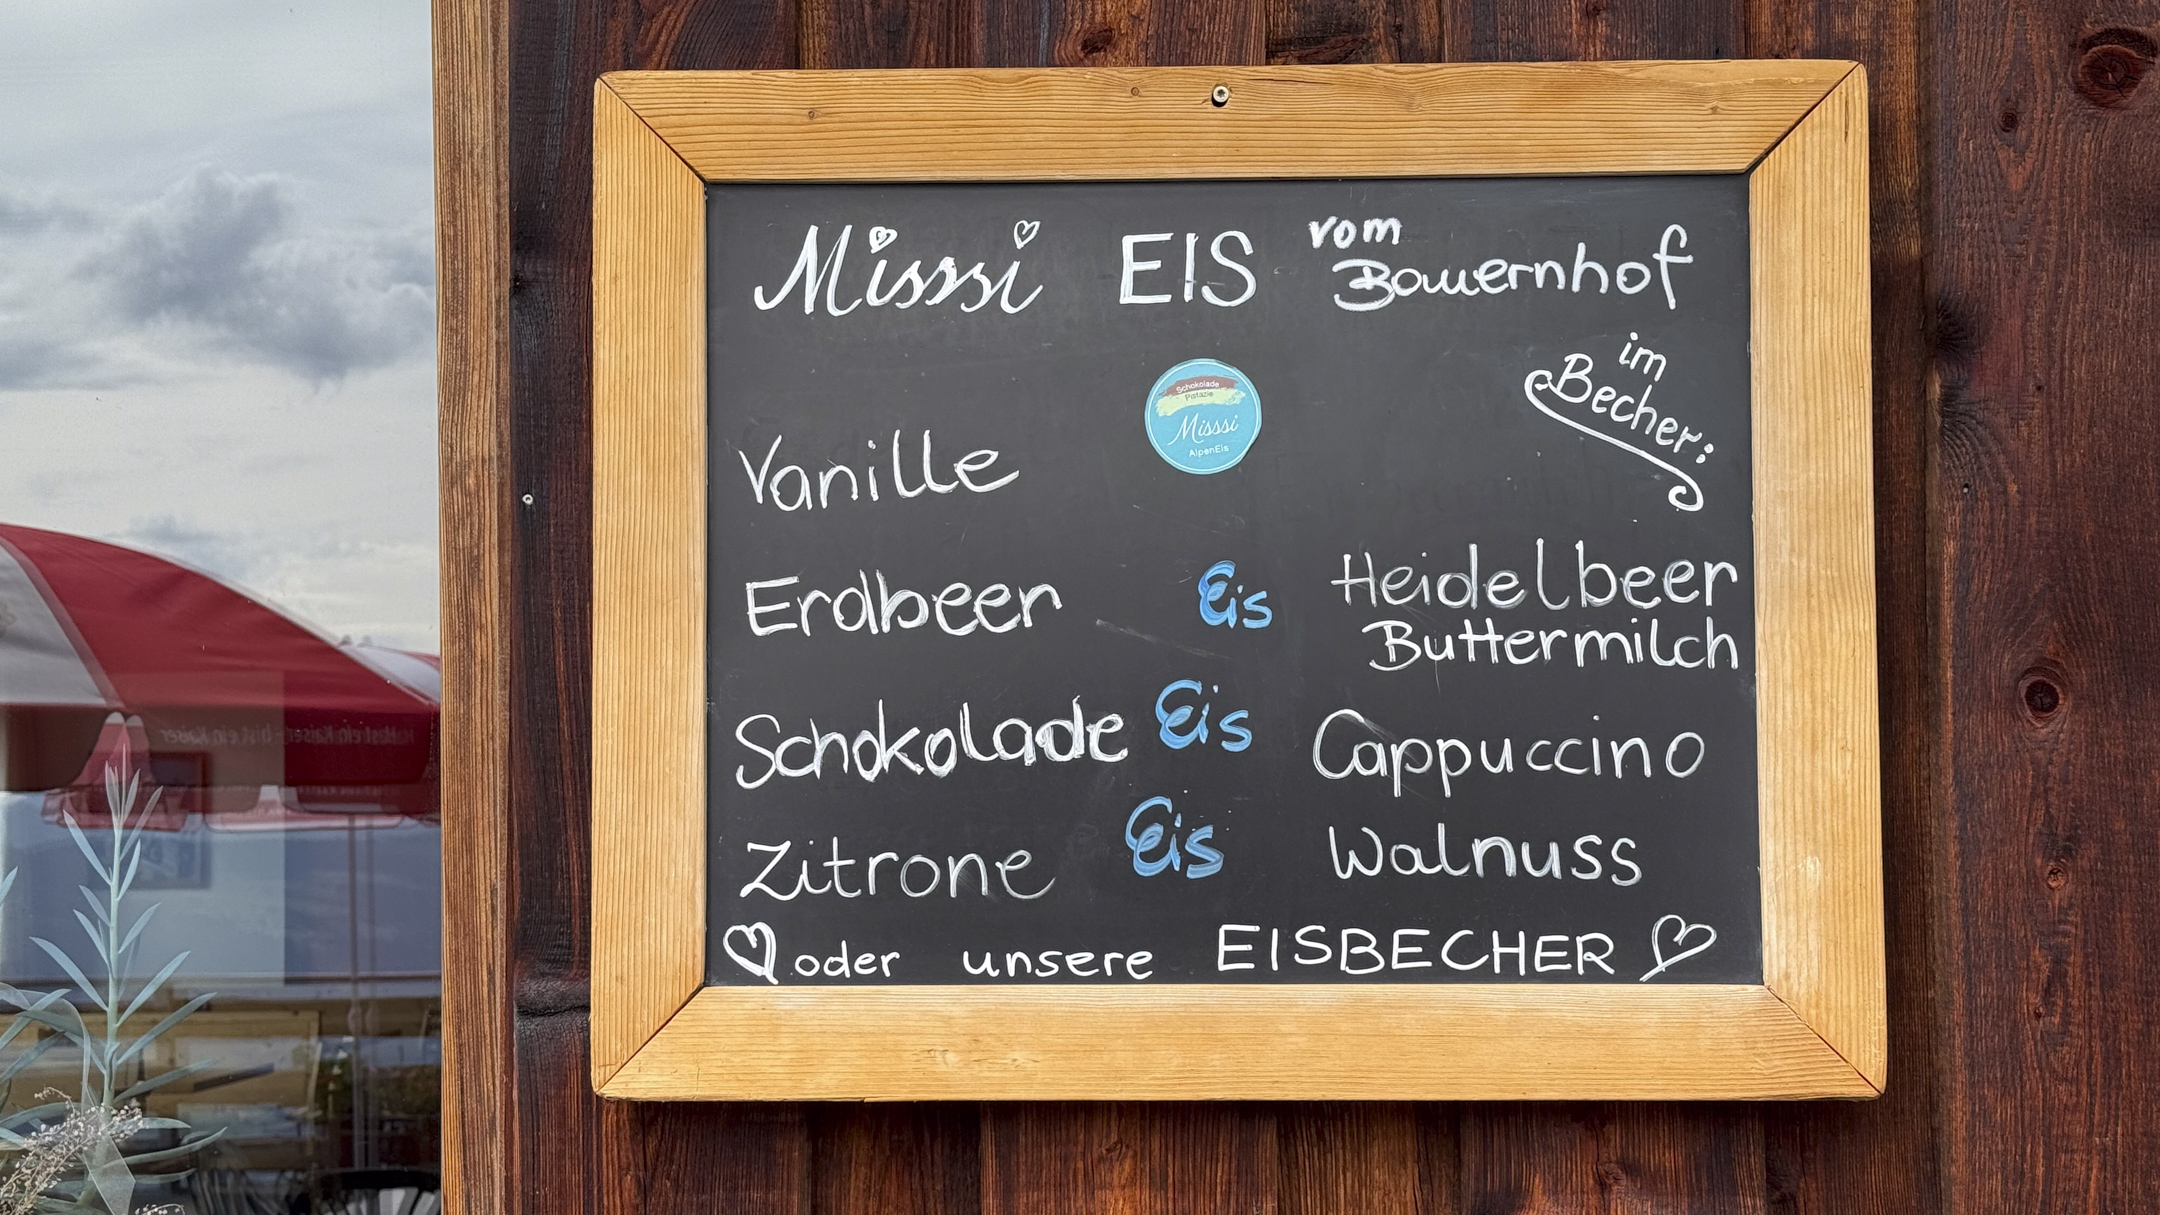 Misssi EIS vom Bauernhof
im
Becher:
Schokolade
Pistazie
Misssi
AlpenEis
Vanille
Erdbeer Eis Heidelbeer
Buttermilch
Schokolade Eis Cappuccino
Zitrone Eis Walnuss
oder unsere EISBECHER